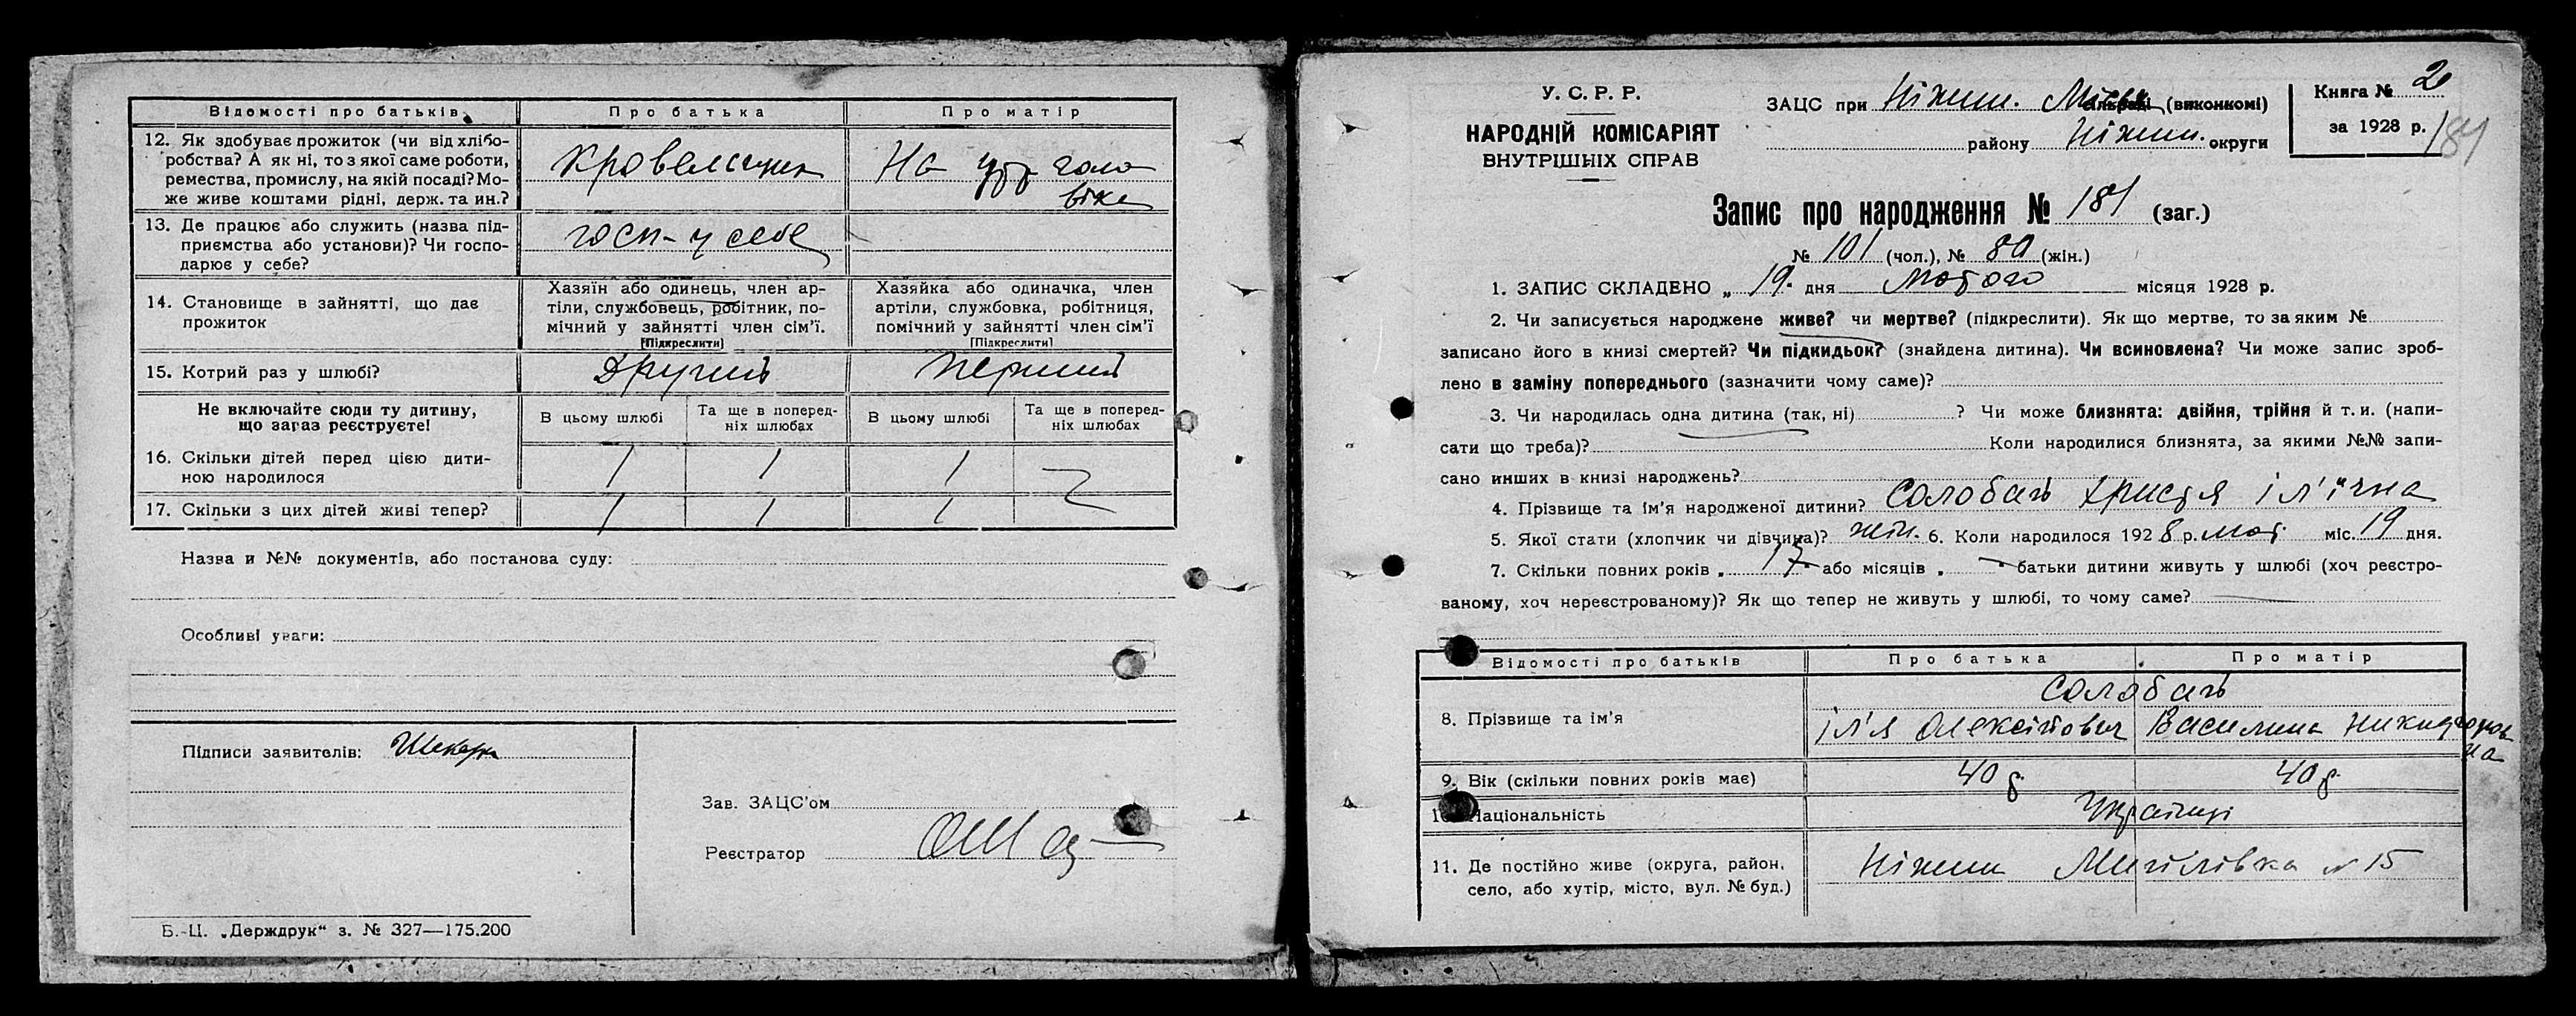 Відомості про батьків
Про батька
Про матір
12. Як здобуває прожиток (чи від хлібо-
робства? А як ні, то з якої саме роботи,
ремества, промислу, на якій посаді? Мо-
же живе коштами рідні, держ. та ин.?
Кровельщик
На утр чоло
віка
13. Де працює або служить (назва під-
приємства або установи)? Чи госпо-
дарює у себе?
госп- у себе
14. Становище в зайнятті, що дає
прожиток
Хазяїн або одинець, член ар-
тіли, службовець, робітник, по-
мічний у зайнятті член сім'ї.
[Підкреслити]
Хазяйка або одиначка, член
артіли, службовка, робітниця,
помічний у зайнятті член сім'ї
[Підкреслити]
15. Котрий раз у шлюбі?
Другий
Перший
Не включайте сюди ту дитину,
що загаз реєструєте!
В цьому шлюбі
Та ще в поперед-
ніх шлюбах
В цьому шлюбі
Та ще в поперед-
ніх шлюбах
16. Скільки дітей перед цією дити-
ною народилося
1 1 1
17. Скільки з цих дітей живі тепер?
1 1 1
Назва и №№ документів, або постанова суду:
Особливі уваги:
Підписи заявителів:
Зав. ЗАЦС'ом
Реєстратор
Б.-Ц. „Держдрук" з. № 327—175.200
У. С. Р. Р.
НАРОДНІЙ КОМІСАРІЯТ
ВНУТРІШНІХ СПРАВ
ЗАЦС при Ніжин. Міськ сільраді (виконкомі)
району Ніжин. округи
Книга № 2
за 1928 р.
181
Запис про народження № 181 (заг.)
№ 101 (чол.), № 80 (жін.)
1. ЗАПИС СКЛАДЕНО „ 19. дня Лютого місяця 1928 р.
2. Чи записується народжене живе? чи мертве? (підкреслити). Як що мертве, то за яким №
записано його в книзі смертей? Чи підкидьок? (знайдена дитина). Чи всиновлена? Чи може запис зроб-
лено в заміну попереднього (зазначити чому саме)?
3. Чи народилась одна дитина (так, ні) ? Чи може близнята: двійня, трійня й т. и. (напи-
сати що треба)? Коли народилися близнята, за якими №№ запи-
сано инших в книзі народжень?
4. Прізвище та ім'я народженої дитини? Солобай Христя Іл'їчна
5. Якої стати (хлопчик чи дівчина)? жін. 6. Коли народилося 1928 р. лют. міс. 19 дня.
7. Скільки повних років „ 17 або місяців „ — батьки дитини живуть у шлюбі (хоч реєстро-
ваному, хоч нереєстрованому)? Як що тепер не живуть у шлюбі, то чому саме?
Відомості про батьків
Про батька
Про матір
8. Прізвище та ім'я
Солобай
Іл'я Олексійович
Василина Никифоров
на
9. Вік (скільки повних років має)
40 р
40 р
10. Національність
Українці
11. Де постійно живе (округа, район,
село, або хутір, місто, вул. № буд.)
Ніжин Мигілівка № 15